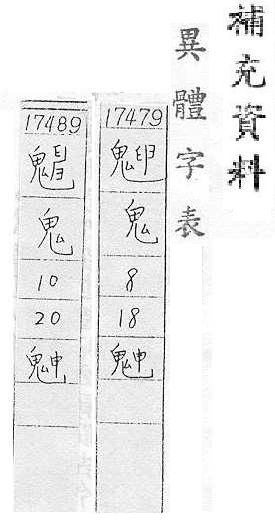 補充資料
異體字表
17479
鬼
8
18
䰠
17489
鬼
10
20
䰠